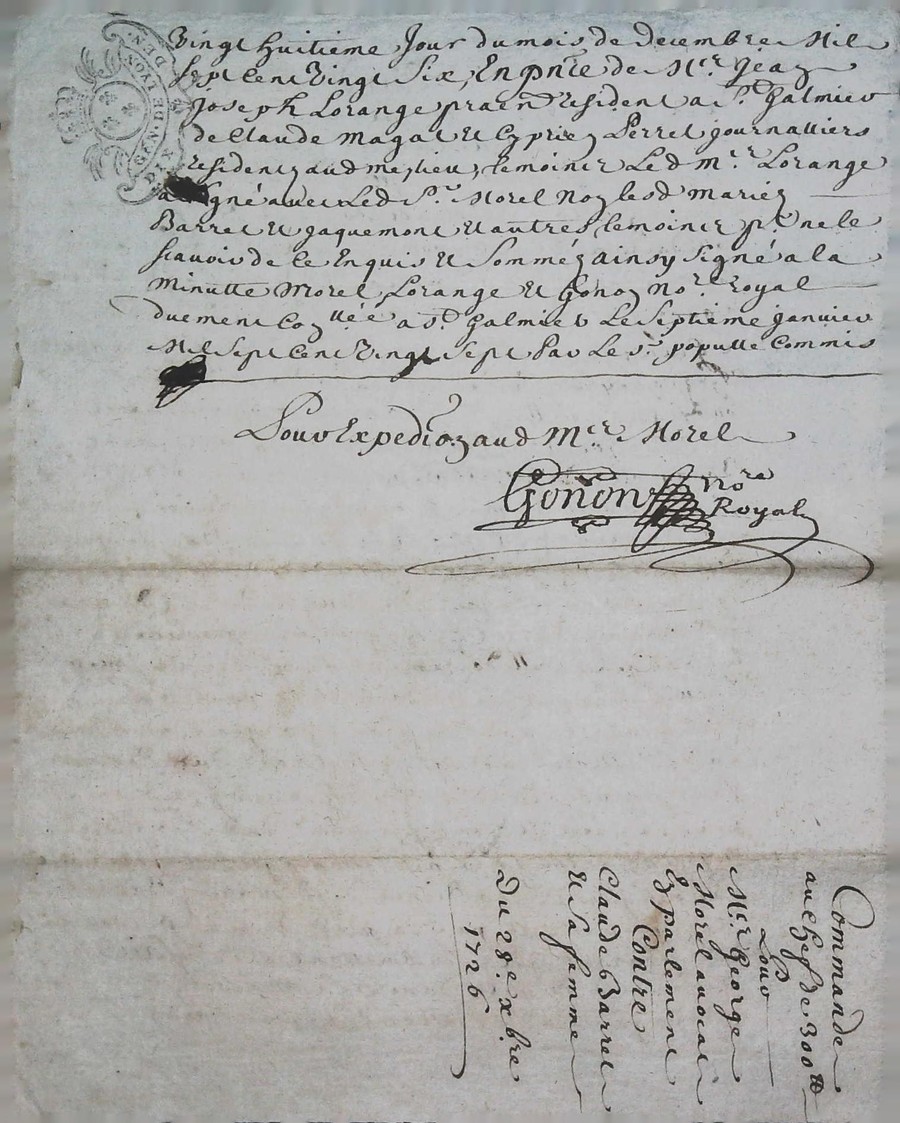 Vingt huitieme Jour du mois de decembre Mil
sept cent Vingt Six, En pn̄ce de Mre Jean
Joseph Lorange praēn Resident a St Galmier
de Claude Magat et Cyprien Perret journalliers
residentz aud mesme lieu, temoins Led mre Lorange
a signé avec Led Sr Morel non lesd mariez
Barret et jaquemont et autres temoins pt ne le
scavoir de ce Enquis et Sommés ainsy signé a la
minutte Morel, Lorange et Gonon nore royal
duement con llée a st Galmier Le Septieme janvier
Mil Sept Cent Vingt Sept Par Le sr populle Commis
Pour Expedion aud Mre Morel
Gonon nore
Royal
GEN. DE LYON
Commande
au chef de 300 tt
Pour
Mre George
Morel avocat
En parlement
Contre
Claude Barret
et Sa femme
Du 28e xbre
1726